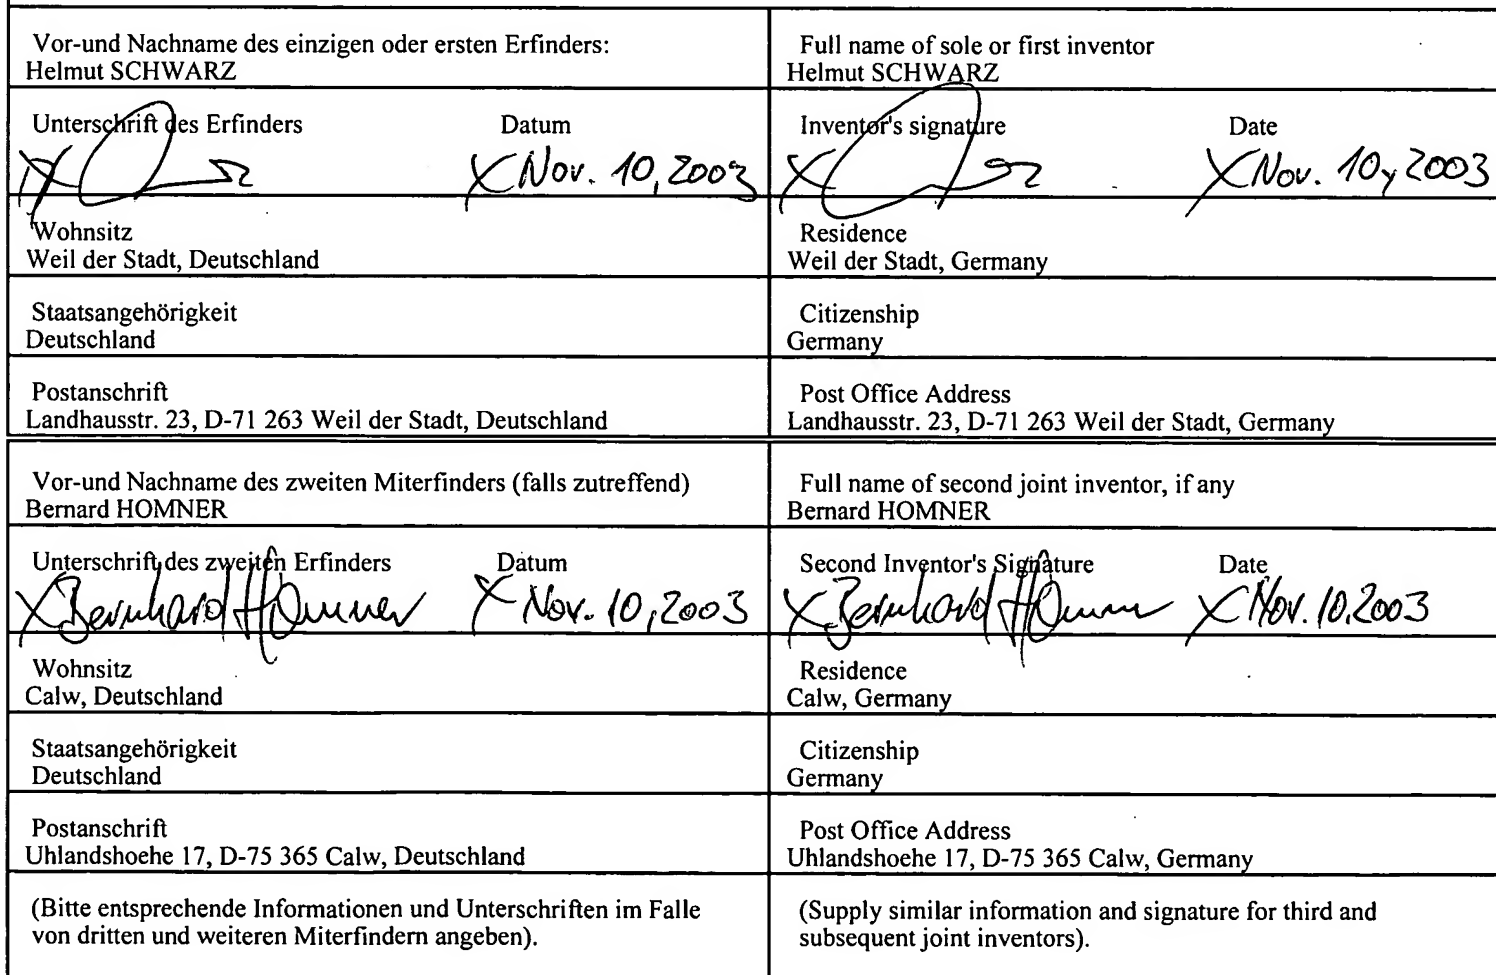 Vor-und Nachname des einzigen oder ersten Erfinders:
Helmut SCHWARZ
Full name of sole or first inventor
Helmut SCHWARZ
Unterschrift des Erfinders Datum
X Nov. 10, 2003
Inventor's signature Date
X X Nov. 10, 2003
Wohnsitz
Weil der Stadt, Deutschland
Residence
Weil der Stadt, Germany
Staatsangehörigkeit
Deutschland
Citizenship
Germany
Postanschrift
Landhausstr. 23, D-71 263 Weil der Stadt, Deutschland
Post Office Address
Landhausstr. 23, D-71 263 Weil der Stadt, Germany
Vor-und Nachname des zweiten Miterfinders (falls zutreffend)
Bernard HOMNER
Full name of second joint inventor, if any
Bernard HOMNER
Unterschrift des zweiten Erfinders Datum
X Bernhard Homner X Nov. 10, 2003
Second Inventor's Signature Date
X Bernhard X Nov. 10. 2003
Wohnsitz
Calw, Deutschland
Residence
Calw, Germany
Staatsangehörigkeit
Deutschland
Citizenship
Germany
Postanschrift
Uhlandshoehe 17, D-75 365 Calw, Deutschland
Post Office Address
Uhlandshoehe 17, D-75 365 Calw, Germany
(Bitte entsprechende Informationen und Unterschriften im Falle
von dritten und weiteren Miterfindern angeben).
(Supply similar information and signature for third and
subsequent joint inventors).